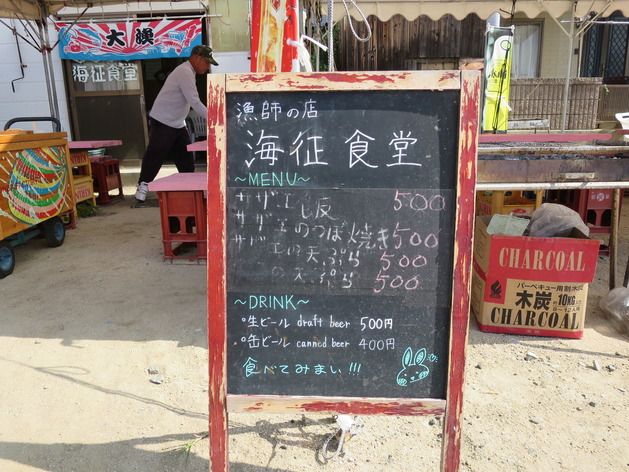 大漁
海征食堂
漁師の店
海征食堂
~MENU~
サザエし反 500
サザエのつぼ焼き 500
サザエの天ぷら 500
の天ぷら 500
~DRINK~
○生ビール draft beer 500円
○缶ビール canned beer 400円
食べてみまい!!!
CHARCOAL
バーベキュー用木炭
木炭 約10KG
8~12人用
CHARCOAL